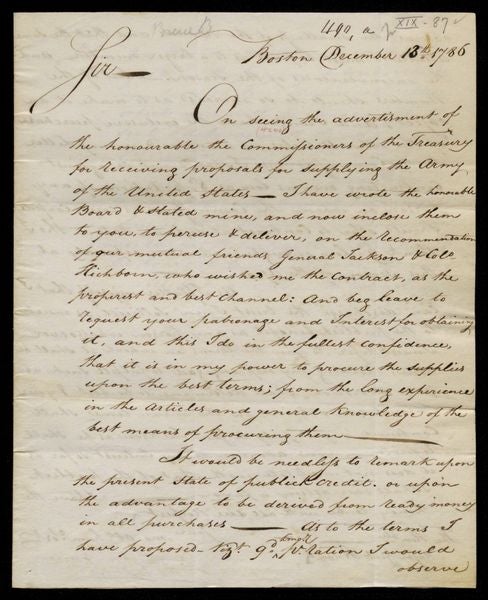 490, a XIX - 87
Boston December 13th. 1786
Sir
On seeing the advertisment of
the honourable the Commissioners of the Treasury
for receiving proposals for supplying the Army
of the United States — I have wrote the honourable
Board & stated mine, and now inclose them
to you, to peruse & deliver, on the recommendation
of our mutual friends General Jackson & Colo
Hichborn, who wished me the contract, as the
properest and best channel: And beg leave to
request your patronage and Interest for obtaining
it, and this I do in the fullest confidence,
that it is in my power to procure the supplies
upon the best terms; from the long experience
in the Articles and general Knowledge of the
best means of procuring them —
It would be needless to remark upon
the present State of publick credit. or upon
the advantage to be derived from ready money
in all purchases — As to the terms I
have proposed - 9d. ration I would
observe